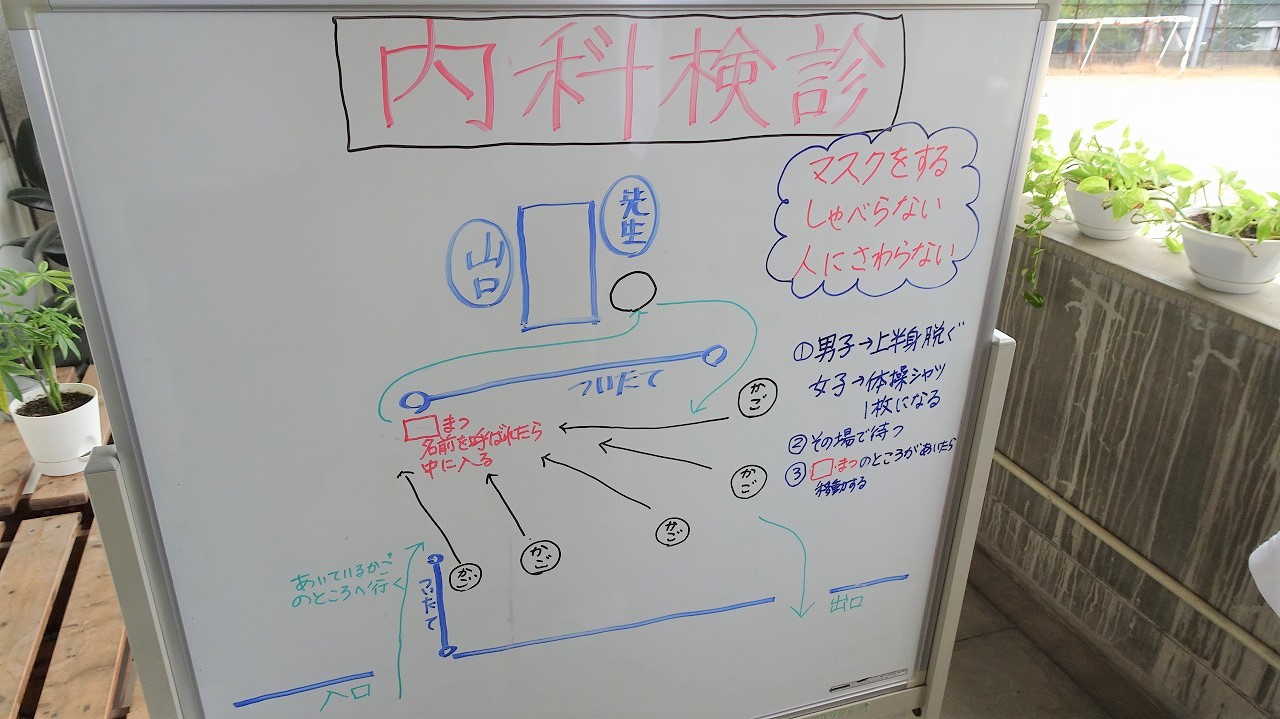 内科検診
マスクをする
しゃべらない
人にさわらない
先生
山口
ついたて
①男子→上半身脱ぐ
女子→体操シャツ
1枚になる
②その場で待つ
③□まつのところがあいたら
移動する
□まつ
名前を呼ばれたら
中に入る
かご
かご
かご
かご
かご
ついたて
あいているかご
のところへ行く
入口
出口